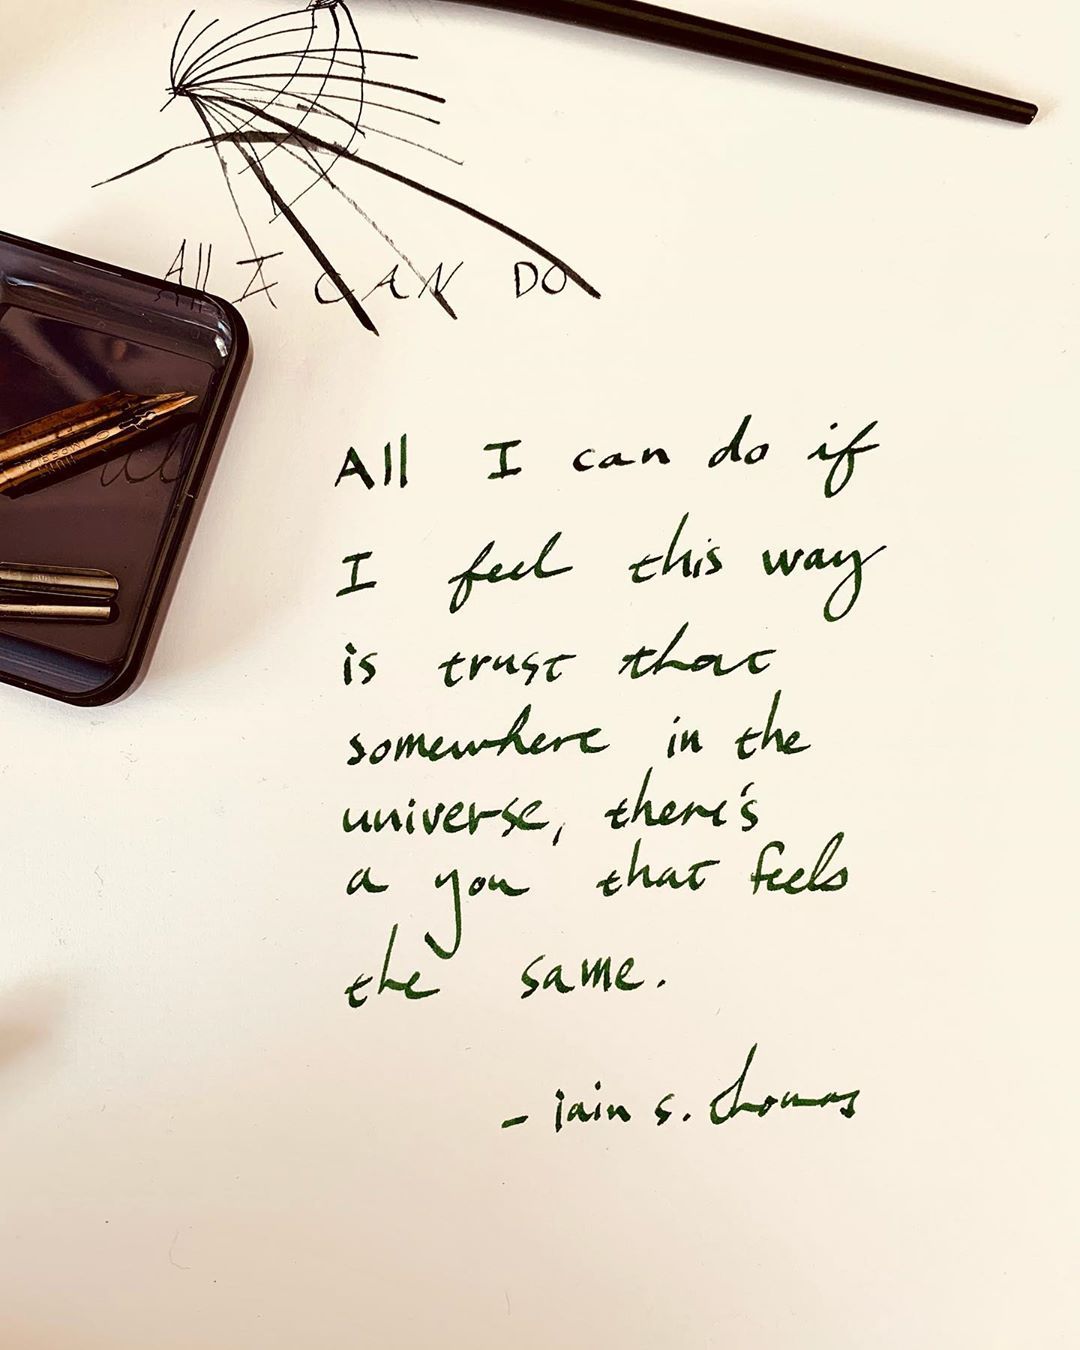 All I CAN DO
All I can do if
I feel this way
is trust that
somewhere in the
universe, there's
a you that feels
the same.
- iain s. thomas